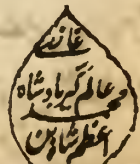 غازے
عالم گیر بادشاہ
محمد
اعظم شاہ بن